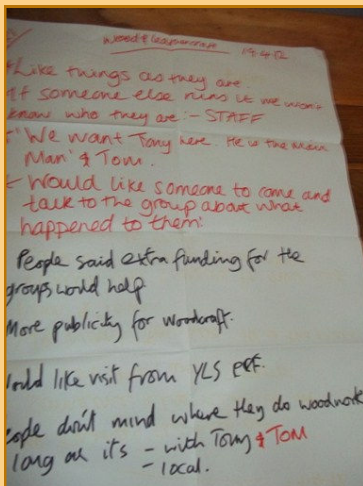 Wood & Leathercraft 19.4.12
Like things as they are.
If someone else runs it we won't
know who they are :- STAFF
"We want Tony here. He is the Main
Man" & Tom.
Would like someone to come and
talk to the group about what
happened to them.
People said extra funding for the
groups would help
More publicity for Woodcraft.
Would like visit from YLS
People don't mind where they do woodwork
long as it's - with Tony & TOM
- local.